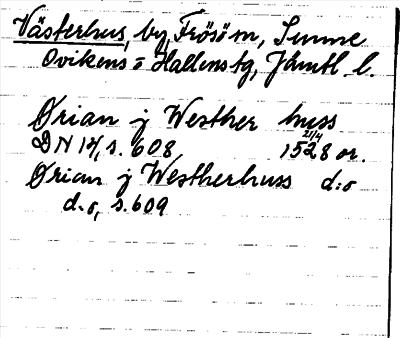 Västerhus, by, Frösö m, Sunne
Ovikens o Hallens tg, Jämtl. l.
Ørian j Westher huss
DN 14, s. 608 21/4 1528 or.
Ørian j Westherhuss d:o
d:o, s. 609